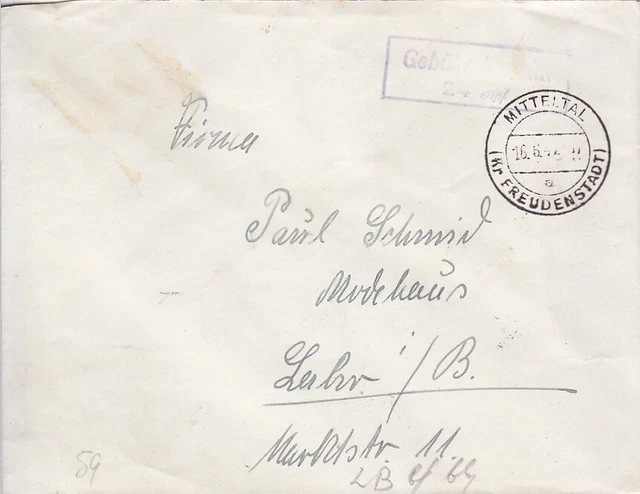 24
MITTELTAL
(Kr FREUDENSTADT)
a
Firma
Paul Schmid
Modehaus
Lahr i/B.
Marktstr. 11.
59